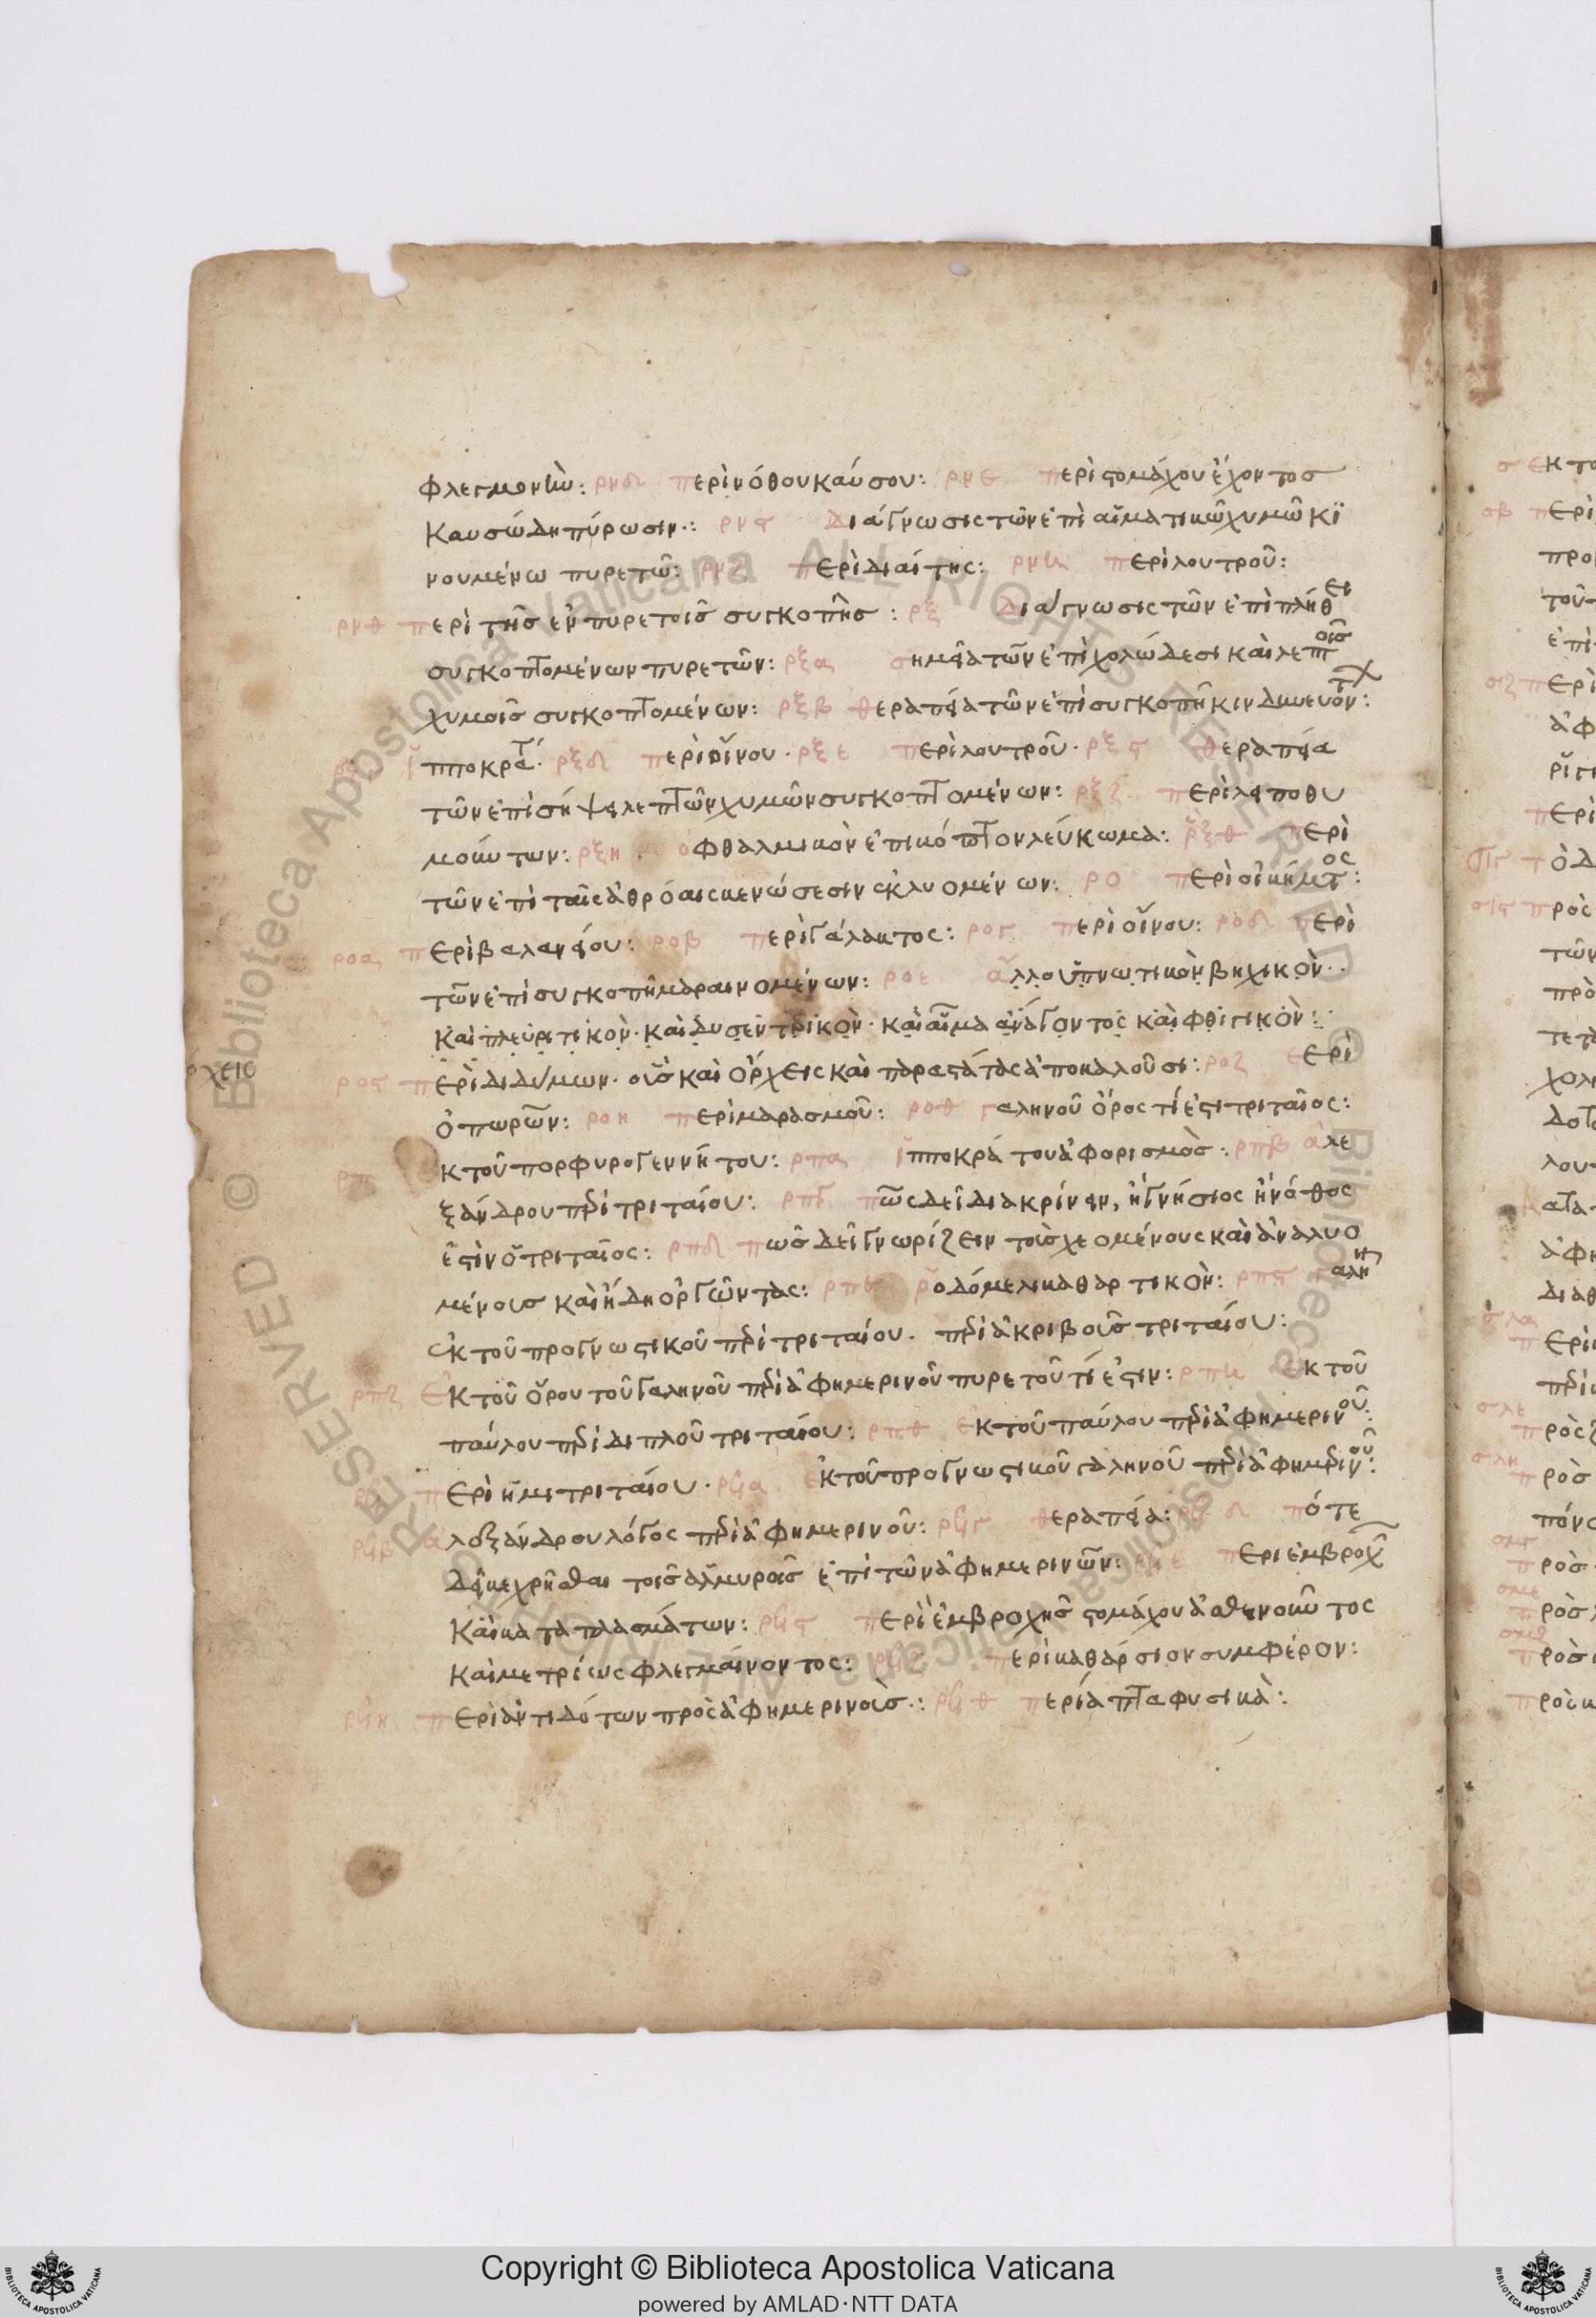 φλεγμονὴν: ρνδ περὶ νόθου καύσου: ρνε περὶ στομάχου ἔχοντος
καυσώδη πύρωσιν: ρνς Διάγνωσις τῶν ἐπὶ αἱματικῶ χυμῶ κϊ
νουμένω πυρετῶ: ρνζ περὶ διαίτης: ρνη περὶ λουτροῦ:
ρνθ περὶ τῆς ἐν πυρετοῖς συγκοπῆς: ρξ Διάγνωσις τῶν ἐπὶ πλήθει
συγκοπτομένων πυρετῶν: ρξα σημεῖα τῶν ἐπὶ χολώδεσι καὶ λεπτοῖς
χυμοῖς συγκοπτομένων: ρξβ θεραπεία τῶν ἐπὶ συγκοπῆ κινδυνευόντ:
ἱπποκράτ. ρξδ περὶ οἴνου. ρξε περὶ λουτροῦ. ρξς θεραπεία
τῶν ἐπὶ σήψει λεπτῶν χυμῶν συγκοπτομένων: ρξζ περὶ λειποθυ
μούντων: ρξη οφθαλμικὸν ἐπικόπτον λεύκωμα: ρξθ περὶ
τῶν ἐπὶ ταῖς ἀθρόαις κενώσεσιν ἐκλυομένων: ρο περὶ οἰκήματος:
ροα περὶ βαλανείου: ροβ περὶ γάλακτος: ρογ περὶ οἴνου: ροδ περὶ
τῶν ἐπὶ συγκοπῆ μαραινομένων: ροε ἄλλο ὑπνωτικὸν βηχικὸν.
καὶ πλευριτικὸν. καὶ δυσεντερικὸν. καὶ αἷμα ἀνάγοντος καὶ φθισικὸν:
ρχεις
ρος περὶ διδύμων. οὓς καὶ ὄρχεις καὶ παραστάτας ἀποκαλοῦσι: ροζ περὶ
ὀπωρῶν: ροη περὶ μαρασμοῦ: ροθ γαληνοῦ ὅρος τί ἐστι τριταῖος:
ρπ ἐκ τοῦ πορφυρογεννήτου: ρπα ἱπποκράτου ἀφορισμὸς: ρπβ ἀλε
ξάνδρου περὶ τριταίου: ρπγ πῶς δεῖ διακρίνειν, ἢ γνήσιος ἢ νόθος
ἐστὶν ὁ τριταῖος: ρπδ πῶς δεῖ γνωρίζειν τοὺς χεομένους καὶ ἀναλυο
μένους καὶ ἤδη ὀργῶντας: ρπε ῥοδόμελι καθαρτικὸν: ρπς γαλην
ἐκ τοῦ προγνωστικοῦ περὶ τριταίου. περὶ ἀκριβοῦς τριταίου:
ρπζ ἐκ τοῦ ὅρου τοῦ γαληνοῦ περὶ ἀφημερινοῦ πυρετοῦ τί ἐστιν: ρπη ἐκ τοῦ
παύλου περὶ διπλοῦ τριταίου: ρπθ ἐκ τοῦ παύλου περὶ ἀφημερινοῦ:
ρϟ περὶ ἡμιτριταίου. ρϟα ἐκ τοῦ προγνωστικοῦ γαληνοῦ περὶ ἀφημερινοῦ:
ρϟβ αλεξάνδρου λόγος περὶ ἀφημερινοῦ: ρϟγ θεραπεία: ρϟδ πότε
δεῖ κεχρῆσθαι τοῖς ἁλμυροῖς ἐπὶ τῶν ἀφημερινῶν: ρϟε περι ἐμβροχῆς
καὶ καταπλασμάτων: ρϟς περὶ ἐμβροχῆς στομάχου ἀσθενοῦντος
καὶ μετρίως φλεγμαίνοντος: ρϟζ περὶ καθάρσιον συμφέρον:
ρϟη περὶ ἀντιδότων πρὸς ἀφημερινοὺς: ρϟθ περίαπτα φυσικὰ:
Copyright © Biblioteca Apostolica Vaticana
powered by AMLAD·NTT DATA